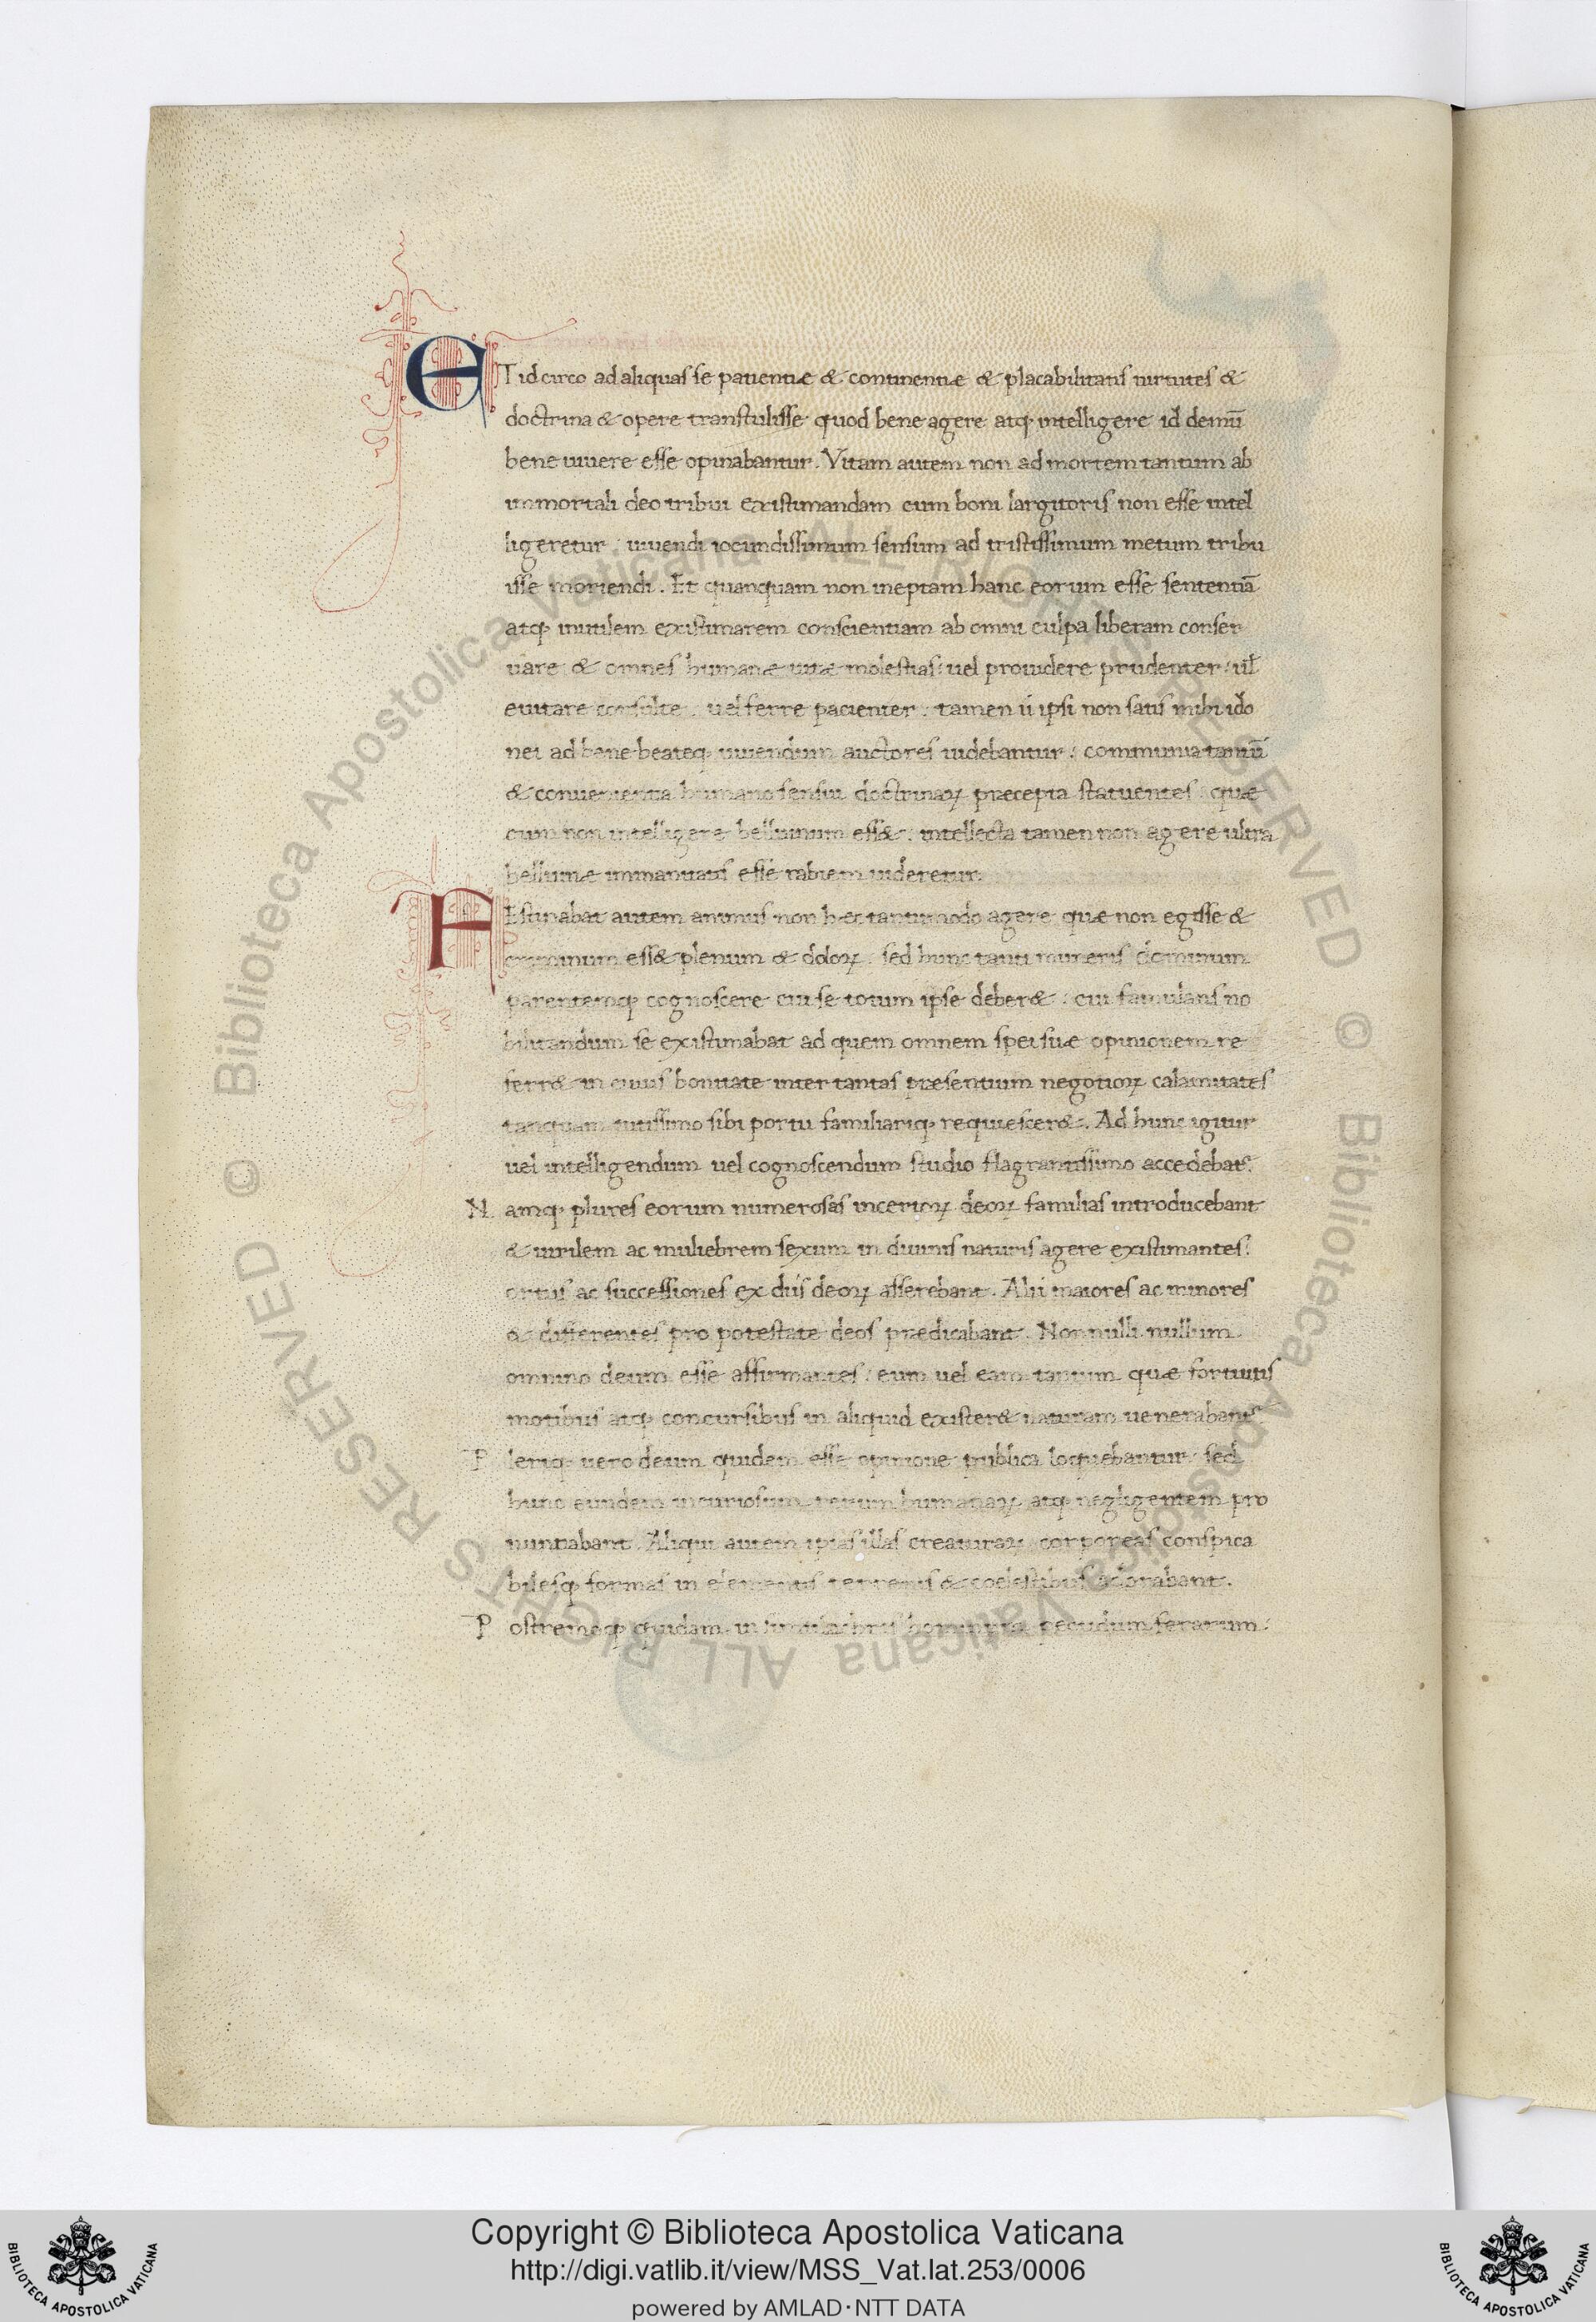 ET idcirco ad aliquas se patientiæ & continentiæ & placabilitatis uirtutes &
doctrina & opere transtulisse quod bene agere atq; intelligere id demū
bene uiuere esse opinabantur. Vitam autem non ad mortem tantum ab
immortali deo tribui existimandam cum boni largitoris non esse intel
ligeretur: uiuendi iocundissimum sensum ad tristissimum metum tribu
isse moriendi. Et quanquam non ineptam hanc eorum esse sententiā
atq; inutilem existimarem conscientiam ab omni culpa liberam conser
uare & omnes humanæ uitæ molestias: uel prouidere prudenter: ul̄
euitare consulte: uel ferre pacienter: tamen ii ipsi non satis mihi ido
nei ad bene beateq; uiuendum auctores uidebantur: communia tantū
& conuenientia humano sensui doctrinaꝝ præcepta statuentes: quæ
cum non intelligere belluinum ess&: intellecta tamen non agere ultra
belluinæ immanitatis esse rabiem uideretur.
FEstinabat autem animus non hæc tantumodo agere quæ non egisse &
criminum ess& plenum & doloꝝ: sed hunc tanti muneris dominum
parentemq; cognoscere cui se totum ipse deber&: cui famulans no
bilitandum se existimabat ad quem omnem spei suæ opinionem re
ferr& in cuius bonitate inter tantas præsentium negotioꝝ calamitates
tanquam tutissimo sibi portu familiariq; requiescer&. Ad hunc igitur
uel intelligendum uel cognoscendum studio flagrantissimo accedebat.
Namq; plures eorum numerosas incertoꝝ deoꝝ familias introducebant
& uirilem ac muliebrem sexum in diuinis naturis agere existimantes:
ortus ac successiones ex diis deoꝝ asserebant. Alii maiores ac minores
& differentes pro potestate deos prædicabant. Non nulli nullum
omnino deum esse affirmantes: eam uel eam tantum quæ fortuitis
motibus atq; concursibus in aliquid exister& naturam uenerabantur
Pleriq; uero deum quidem esse opinione publica loquebantur: sed
hunc eundem incuriosum rerum humanaꝝ atq; negligentem pro
nuntiabant. Aliqui autem ipsas illas creaturaꝝ corporeas conspica
bilesq; formas in elementis terrenis & coelestibus adorabant.
Postremoq; quidam in simulachris hominum pecudum ferarum:
Copyright © Biblioteca Apostolica Vaticana
http://digi.vatlib.it/view/MSS_Vat.lat.253/0006
powered by AMLAD·NTT DATA
BIBLIOTECA APOSTOLICA VATICANA
BIBLIOTECA APOSTOLICA VATICANA
© Biblioteca Apostolica Vaticana ALL RIGHTS RESERVED
© Biblioteca Apostolica Vaticana ALL RIGHTS RESERVED